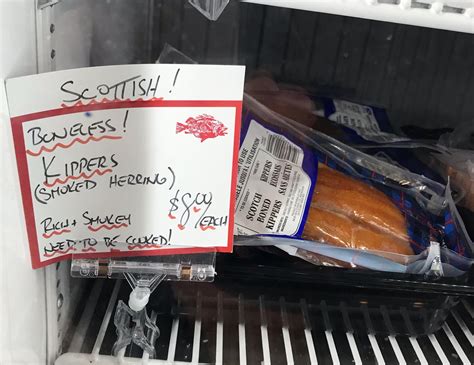 SCOTTISH!
BONELESS!
KIPPERS
(SMOKED HERRING)
$8.00/EACH
RICH + SMOKEY
NEED TO BE COOKED!
SCOTCH
BONED
KIPPERS
KIPPERS
SANS ARETES